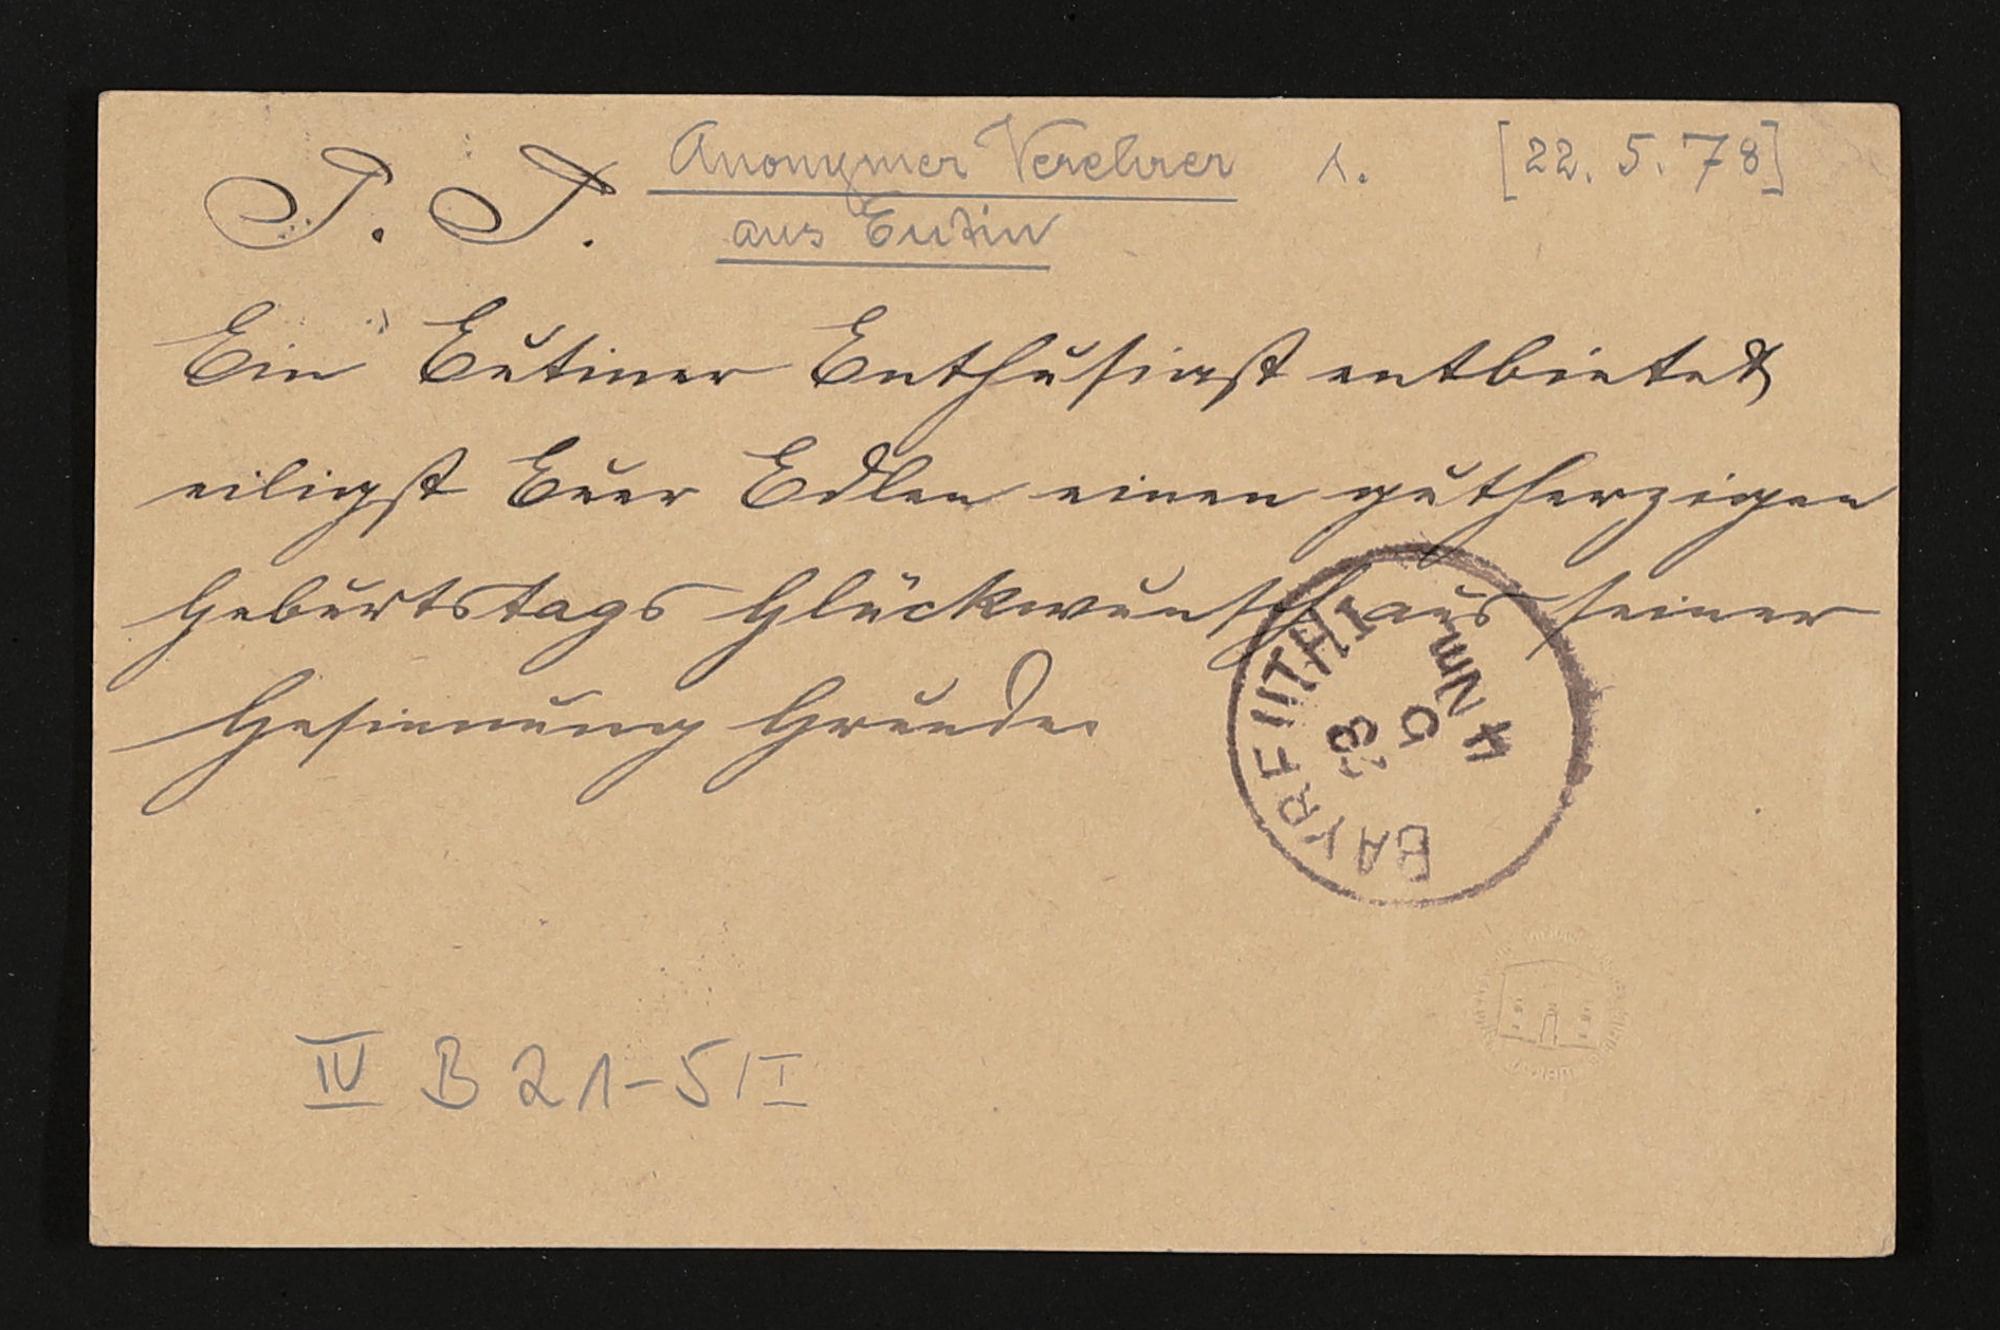 P. P.
Anonymer Verehrer 1. [22. 5. 78]
aus Eutin
Ein Eutiner Enthusiast entbietet
eiligst Euer Edlen einen gutherzigen
Geburtstags Glückwunsch aus seiner
Gesinnung Grunde.
BAYREUTH I
23
5
4 Nm
IV B 21-5/I